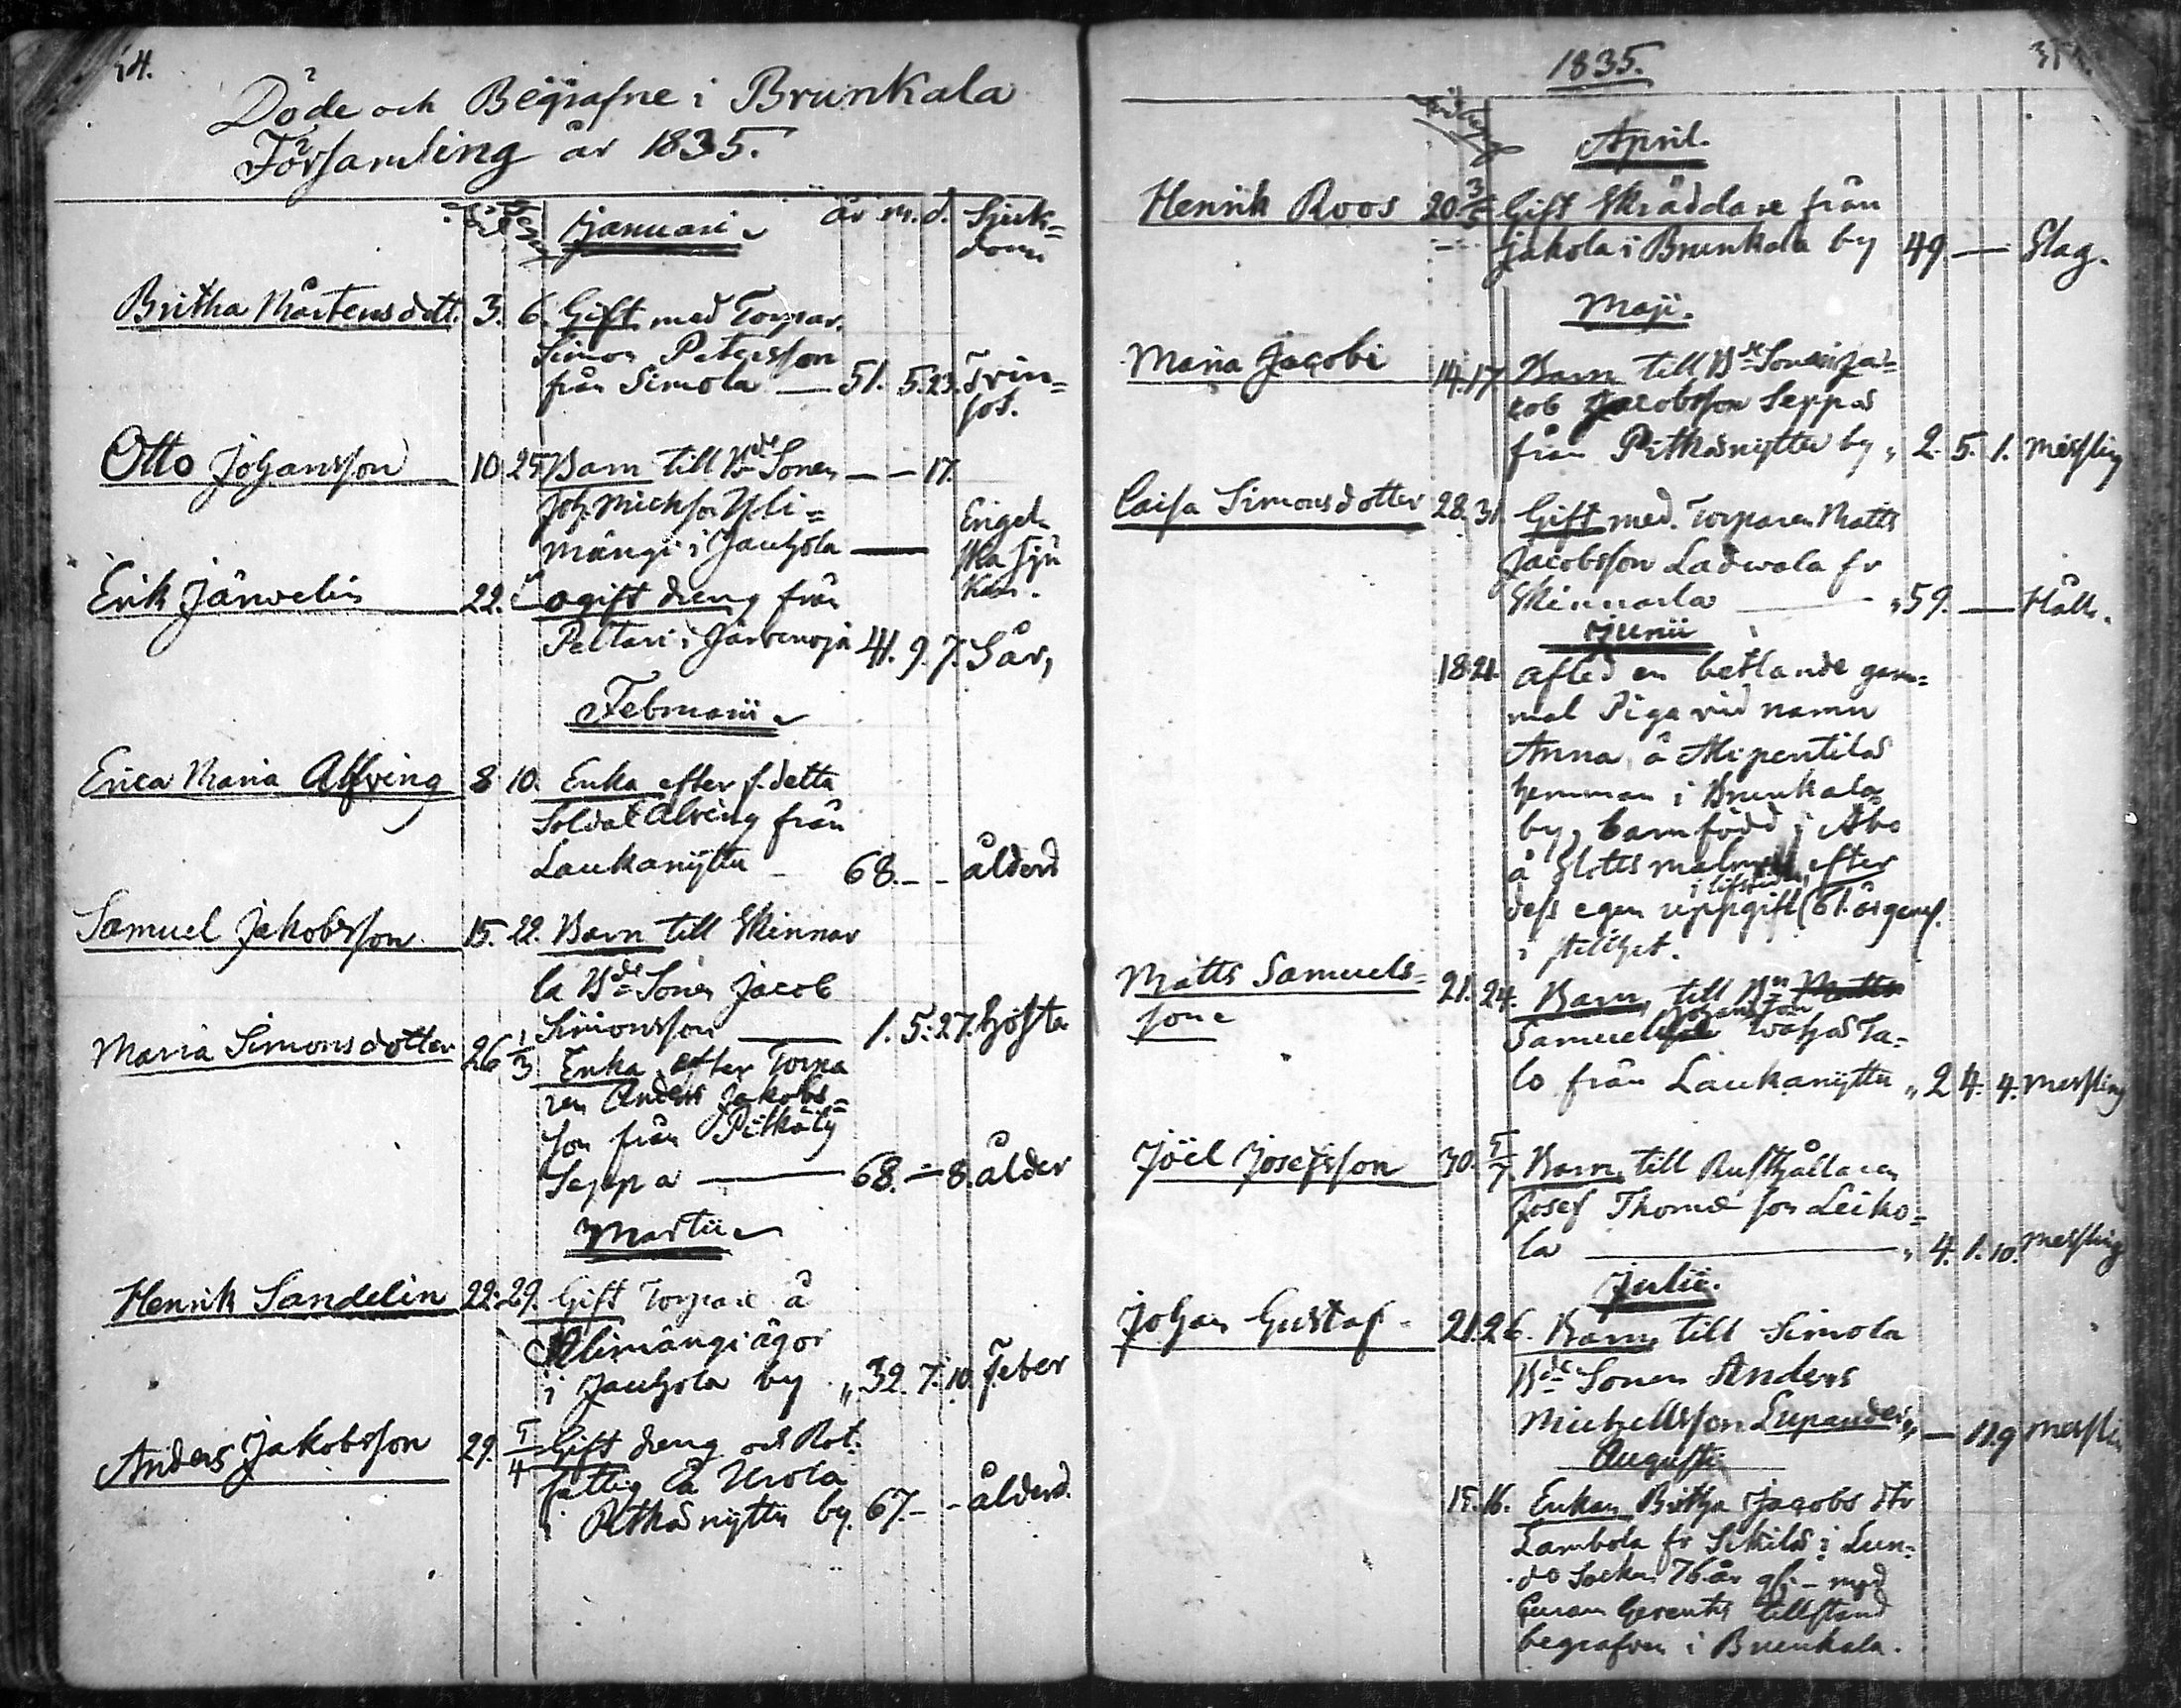 Döde och Begrafne i Brunkala
Församling år 1835.
Januari
år m. d. Sjuk=
dom
Britha Mårtensdott. 3. 6. Gift med Torpar.
Simon Petersson
från Simola — 51. 5. 23. Tvin=
sot.
Otto Johansson 10 25 Barn till Bde Sonen — — 17.
Joh. Mickson Yli=
mängi i Jauhola —
Engel
ska sju
kan.
Erik Järvelin 22. ogift dreng från
Peltari i Järvenoja 41. 9. 7. Sår,
Februarii
Erica Maria Alfving 8 10. Enka efter f. detta
Soldat Alving från
Laukanytta — 68. - - ålderd
Samuel Jakobsson 15. 22. Barn till Skinnar
la Bde Sonen Jacob
Simonsson — 1. 5. 27. Hosta
Maria Simonsdotter 26 1/3 Enka efter Torpa
ren Anders Jakobs=
son från Pitkäby
Seppa — 68. — 8. ålder
Martii
Henrik Sandelin 22. 29. Gift Torpare å
Ylimängi ägor
i Jauhola by „ 32. 7. 10. Feber
Anders Jakobsson 29. 5/4 Gift dreng och Rot.
fattig å Urola
i Pitkänytta by. 67. - - ålderd.
1835.
April.
Henrik Roos 20. 3/5 Gift Skräddare från
Jakola i Brunkala by 49 — Slag.
Maji.
Maria Jacobi 14. 17 Barn till Bde Sonen Ja=
cob Jacobsson Seppas
från Pitkänytta by „ 2. 5. 1. Messling
Caisa Simonsdotter 28. 31. Gift med Torparen Matts
Jacobsson Ladwala fr
Skinnarla — „ 59. — Håll.
Junii
18. 21. Afled en betlande gam=
mal Piga vid namn
Anna å Alipentilas
hemman i Brunkala
by, barnfödd i Åbo
å Slottsmalmen efter
i lifstiden
dess egen uppgift (61. år gaml.
i stillhet.
Matts Samuels=
son 21. 24. Barn till Bn Matts
Johansson
Samuel Wähäta=
lo från Laukanytta „ 2 4. 4. Messling
Joel Josefsson 30. 5/7 Barn till Rusthållaren
Josef Thomæson Leiko=
la — „ 4. 1. 10. Messling
Julii.
Johan Gustaf 21. 26. Barn till Simola
Bde Sonen Anders
Michellsson Lepander „ — 11. 9 Messlin
Augusti
15. 16. Enkan Britha Jacobs dtr
Lambola fr Sikilä i Lun=
do Socken 76 år gl. — med
begrafven i Brunkala.